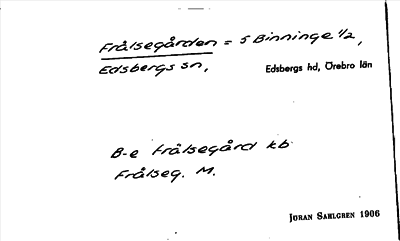 Frälsegården = S Binninge 1/2,
Edsbergs sn, Edsbergs hd, Örebro län
B-e Frälsegård kb
Frälseg. M.
JÖRAN SAHLGREN 1906